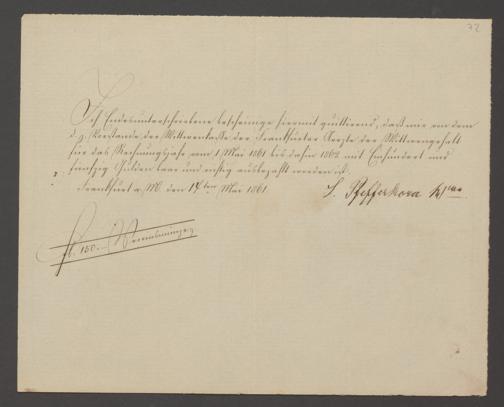 72
Ich Endesunterschriebene bescheinige hiermit quittirend, daß mir von dem
d. z. Vorstande der Wittwenkasse der Frankfurter Aerzte der Wittwengehalt
für das Rechnungsjahr vom 1 Mai 1861 bis dahin 1862 mit Einhundert und
fünfzig Gulden baar und richtig ausbezahlt worden ist.
Frankfurt a. M. den 14ten Mai 1861.
S. Pfefferkorn
fl. 150.